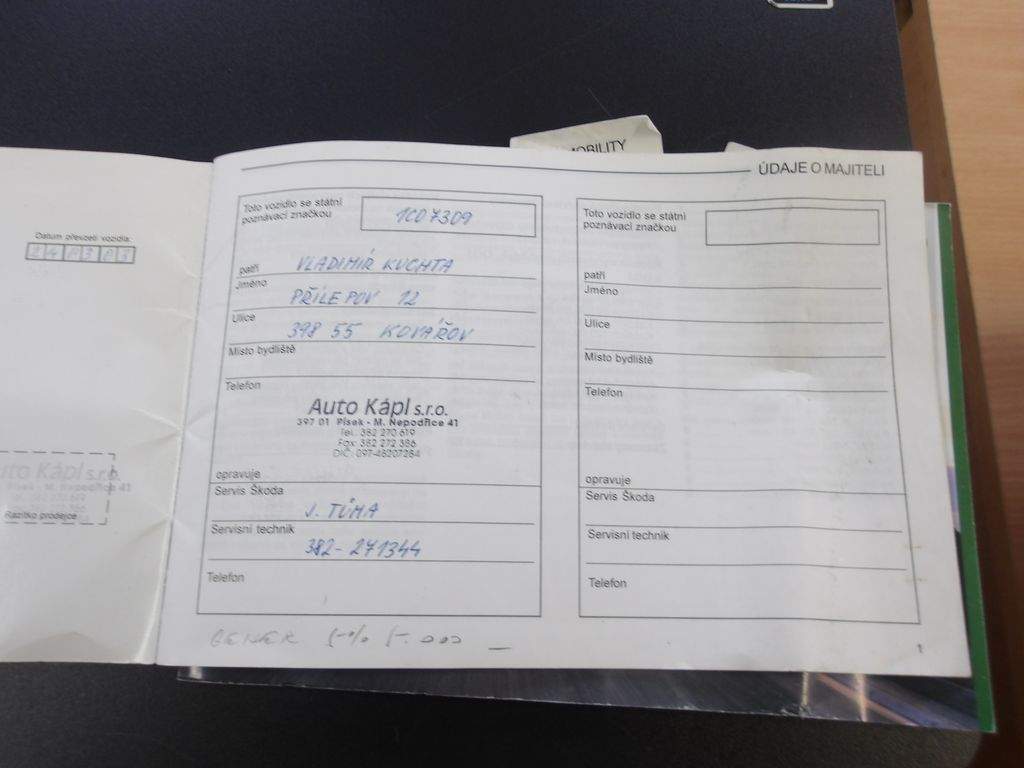 MOBILITY
ÚDAJE O MAJITELI
Datum převzetí vozidla:
Auto Kápl s.r.o.
Písek - M. Nepodřice 41
Razítko prodejce
Toto vozidlo se státní
poznávací značkou
1C0 7309
patří
VLADIMÍR KUCHTA
Jméno
PŘÍLEPOV 12
Ulice
398 55 KOVÁŘOV
Místo bydliště
Telefon
Auto Kápl s.r.o.
397 01 Písek - M. Nepodřice 41
Tel. 382 270 619
Fax 382 272 386
DIČ: 097-48207284
opravuje
Servis Škoda
J. TŮMA
Servisní technik
382-271344
Telefon
Toto vozidlo se státní
poznávací značkou
patří
Jméno
Ulice
Místo bydliště
Telefon
opravuje
Servis Škoda
Servisní technik
Telefon
1